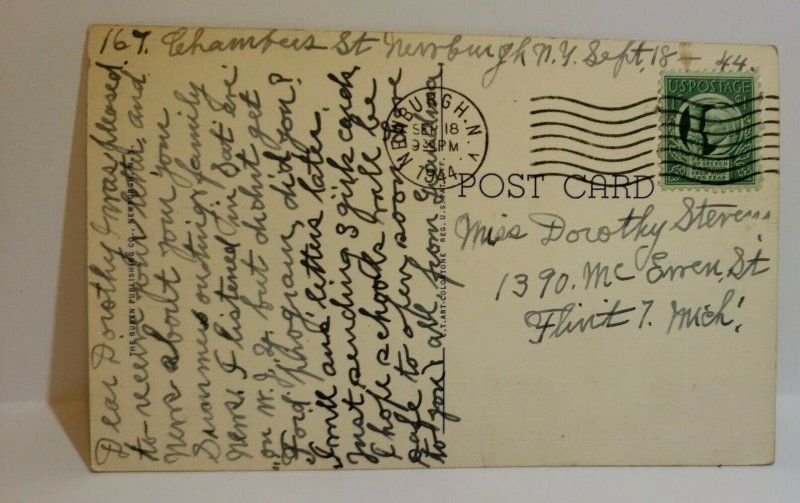 167. Chambers St Newburgh N.Y. Sept, 18 - 44.
Dear Dorothy I was pleased
to receive your letter and
News about your
Swimms outing family
News. I listened in Sat. Eve
"on W.J.Z. but didnt get
"Ford program, did you?
I will ans' letters later.
Just sending 3 girls cards
I hope schools will be
safe to open soon. Love
to you all, from Grandma
THE RUBEN PUBLISHING CO., NEWBURGH, N.Y.
NEWBURGH, N.Y.
SEP 18
9 30 PM
1944
U.S. POSTAGE
1¢
OF SPEECH
FROM WANT
AND FEAR
POST CARD
C.T. ART-COLORTONE REG. U.S. PAT. OFF.
Miss Dorothy Stevens
1390. Mc Ewen, St
Flint 7. Mich'.